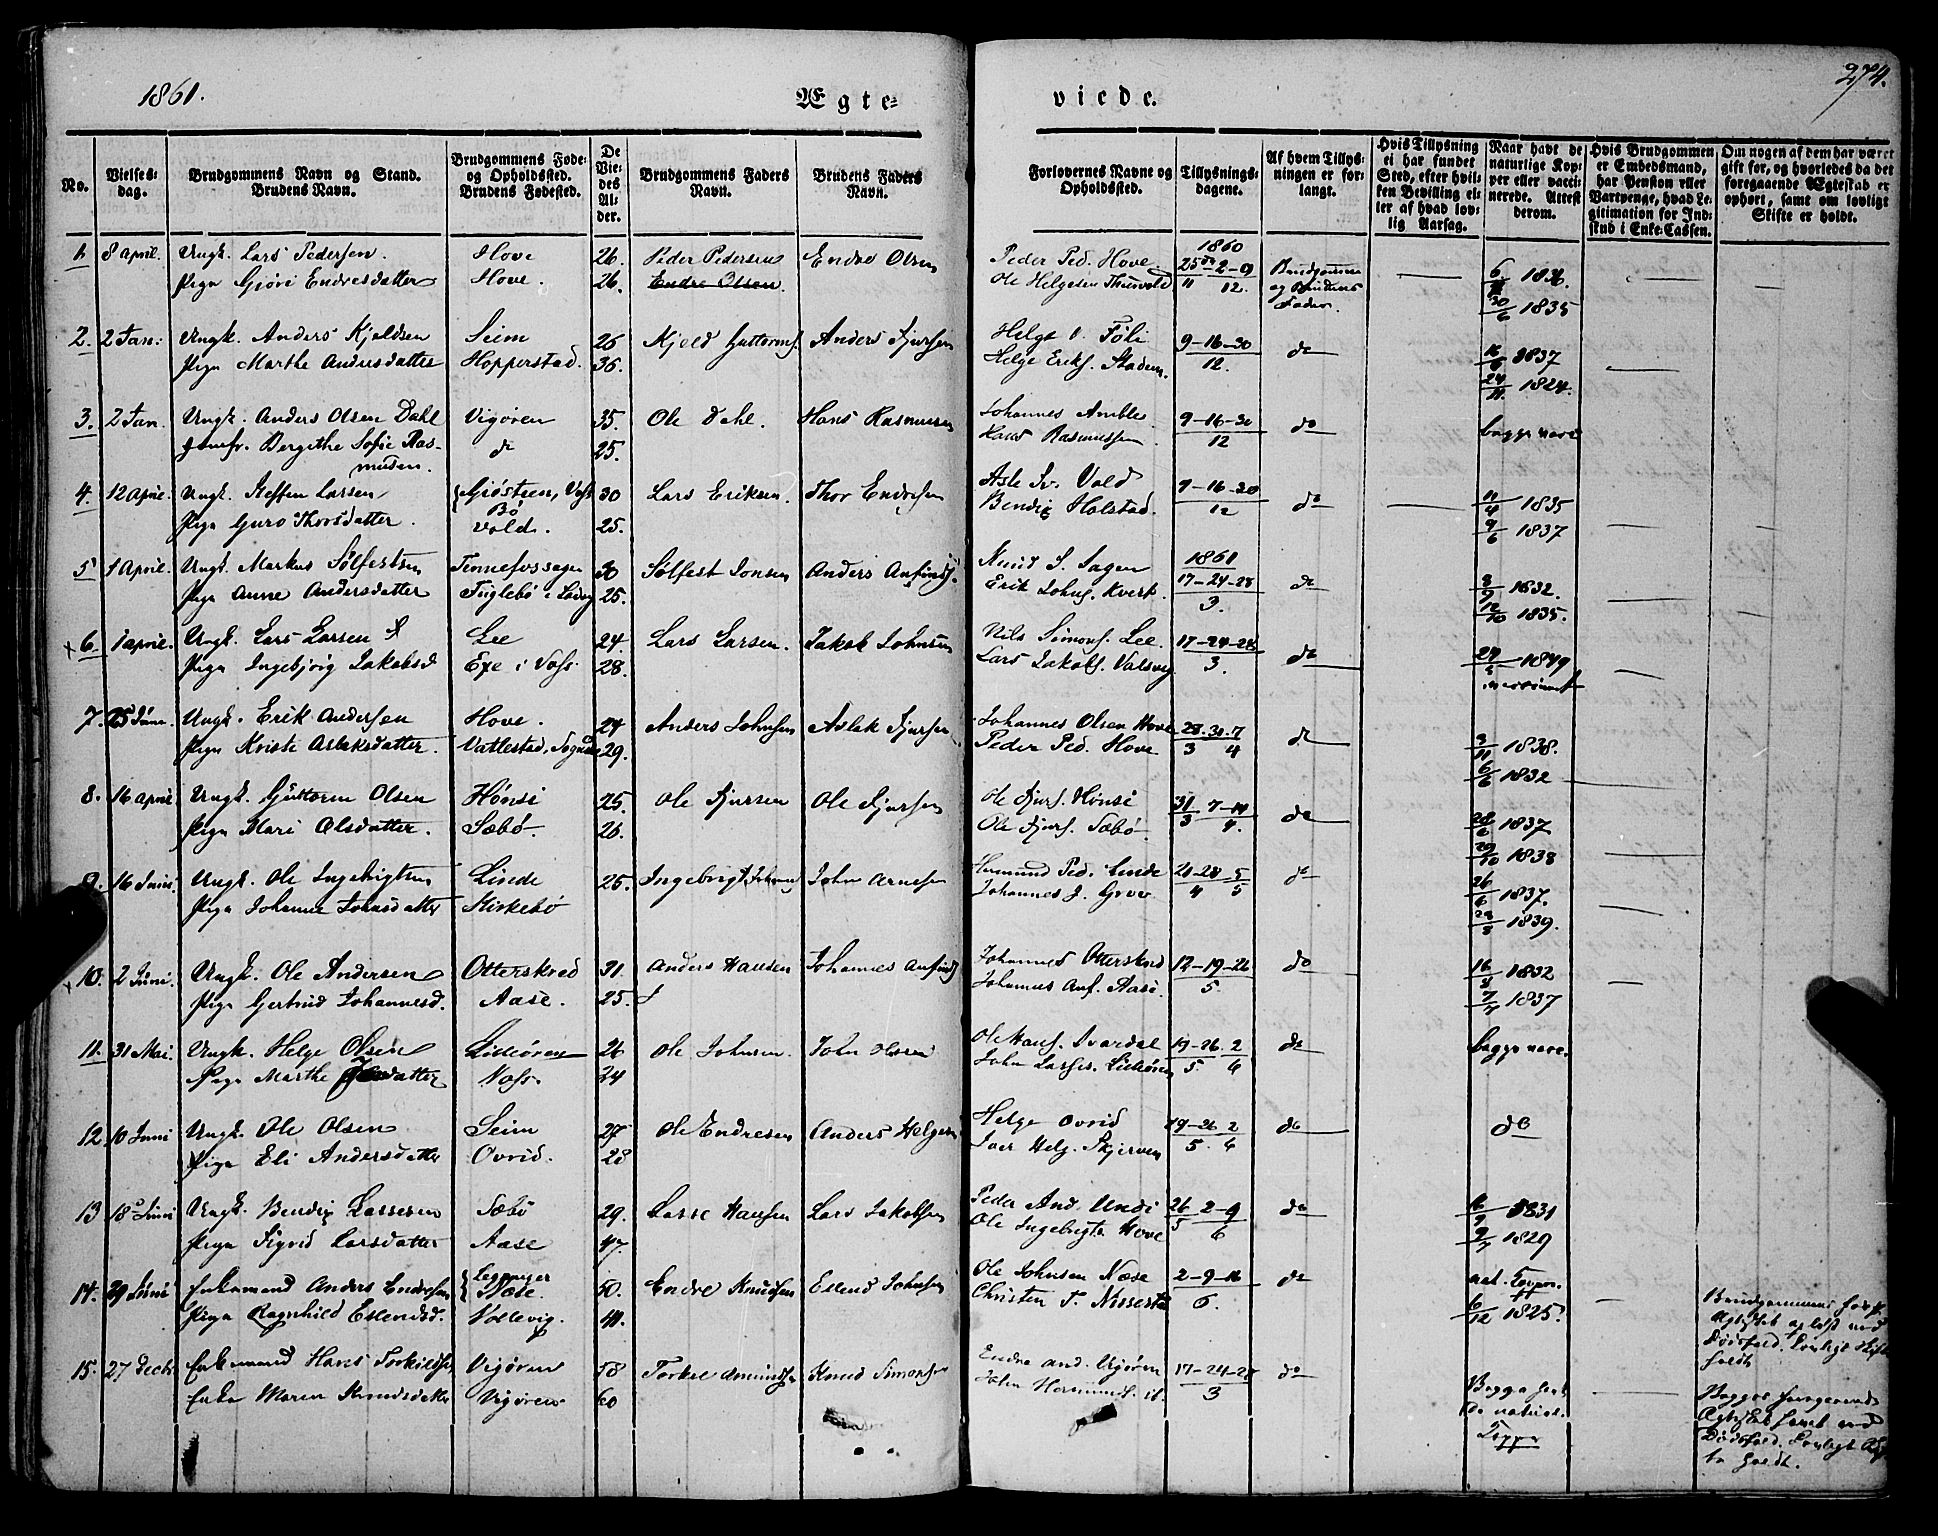 1861.
Ægte-
viede.
274.
No.
Vielses-
dag.
Brudgommens Navn og Stand.
Brudens Navn.
Brudgommens Føde-
og Opholdssted.
Brudens Fødested.
De
Vie-
des
Al-
der.
Brudgommens Faders
Navn.
Brudens Faders
Navn.
Forlovernes Navne og
Opholdssted.
Tillysnings-
dagene.
Af hvem Tillys-
ningen er for-
langt.
Hvis Tillysning
ei har fundet
Sted, efter hvil-
ken Bevilling el-
ler af hvad lov-
lig Aarsag.
Naar havt de
naturlige Kop-
per eller vacci-
nerede. Attest
derom.
Hvis Brudgommen
er Embedsmand,
har Pension eller
Vartpenge, hvad Le-
gitimation for Ind-
skud i Enke-Cassen.
Om nogen af dem har været
gift for, og hvorledes da det
foregaaende Ægteskab er
ophørt, samt om lovligt
Skifte er holdt.
1. 8 April. Ungk. Lars Pedersen. Hove 26. Peder Pedersen Endre Olsen Peder Ped. Hove 1860 25-2-9 Brudgommens 6/ 1836.
Pige Gjøri Endresdatter Hove. 26. Endre Olsen. Ole Helgesen 11 12. og Brudens Fader 30/6 1835
2. 2 Jan: Ungk. Anders Kjeldsen Seim 26 Kjeld Guttorms. Anders Sjursen Helge O. Føli 9-16-30 do 16/6 1837
Pige Marthe Andersdatter Hopperstad. 36. Helge Eriks. Stadem. 12. 24/11 1824.
3. 2 Jan. Ungk. Anders Olsen Dahl Vigøren 35. Ole Dahl. Hans Rasmussen Johannes Amble 9-16-30 do begge nære
Jomfr. Bergithe Sofie Ras- do 25. Hans Rasmussen 12
musen.
4. 12 April. Ungk. Steffen Larsen Gjøsteen, Voss 30 Lars Eriksen Thor Endresen Asle Iv. Vold 9-16-30 do 11/4 1835
Bø
Pige Guro Thorsdatter. Vold. 25. Bendix Holstad. 12 9/6 1837
5 1 April. Ungk. Markus Sølfestsen Tennefossagen 30 Sølfest Jonsen Anders Anfinds. Knud S. Sagen 1861 17-24-28 do 8/9 1832.
Pige Anne Andersdatter Fuglebø i 25. Erik Johns. Kvest. 3. 12/10 1835.
6. 1 April. Ungk. Lars Larsen Lee 24. Lars Larsen. Jakob Johnsen Nils Simons. Lee 17-24-28 do 1849
Pige Ingebjørg Jakobsd Exe i Voss. 28. Lars Jakobs. 3.
7. 25 Juni. Ungk. Erik Andersen Hove. 24 Anders Johnsen Aslak Sjursen Johannes Olsen Hove 28. 31. 7 do 3/11 1838.
Pige Kristi Aslaksdatter. Vatlestad, 29. Peder Ped. Hove 3 4 6/6 1832
8. 16 April Ungk. Guttorm Olsen Hønsi 25. Ole Sjursen Ole Sjursen Ole Sjurs. Hønsi 31 7-14 do 28/6 1837
Pige Mari Olsdatter. Sæbø 26. Ole Sjurs. Sæbø 3 4. 1838
9. 16 Juni Ungk. Ole Ingebrigtsen Linde 25. Ingebrigt John Arnesen Hermund Ped. Linde 21-28 5 do 26/6 1837.
Pige Johanne Johnsdatter Kirkebø Johannes J. 4 5 1839.
10. 2 Juni. Ungk. Ole Andersen Otterskred 31. Anders Hansen Johannes Anfinds Johannes Otterskred 12-19-26 do 16/8 1832
Pige Gertrud Johannesd. Aase. 25. Johannes Anf. Aase. 5. 7/7 1837
11. 31 Mai. Ungk. Helge Olsen 26 Ole Johnsen. John Olsen Ole Hans. 19-26. 2 do begge nære.
Pige Marthe Voss. 24 John Larsen 5 6
12 10 Juni Ungk. Ole Olsen Seim 27 Ole Endresen Anders Helgesen Helge Ovrid 19-26 2 do do
Pige Eli Andersdatter Ovrid. 28 Iver Helg. Skjerven 5. 6
13 18 Juni Ungk. Bendix Lassesen Sæbø 29. Lasse Hansen Lars Jakobsen Peder And. Undi 26 2-9 do 1831
Pige Sigrid Larsdatter Aase 47. Ole Ingebrigts. Hove 5 6 9/7 1829
14. 29 Juni Enkemand Anders Endresen Leganger Næse. 50. Endre Knudsen Erlend Johnsen Ole Johnsen Næse 2-9-16 do nat. Kopper.
Pige Ragnhild Erlendsd. Vollevig. 41. Christen T. 6. 6/12 1825. Brudgommens forr. Ægteskab opløst ved Dødsfald. Lovligt Skifte holdt
15. 27 Decb. Enkemand Hans Torkildsen Vigøren 58 Torkel Amundsen Knud Simonsen Endre And. Vigøren 17-24-28 do Begge havt
Enke Maren Knudsdatter Vigøren. 60 John Hermunds. ib. 3 De naturl. Kopper
Begges foregaaende Ægteskab hævet ved Dødsfald. Lovligt holdt.